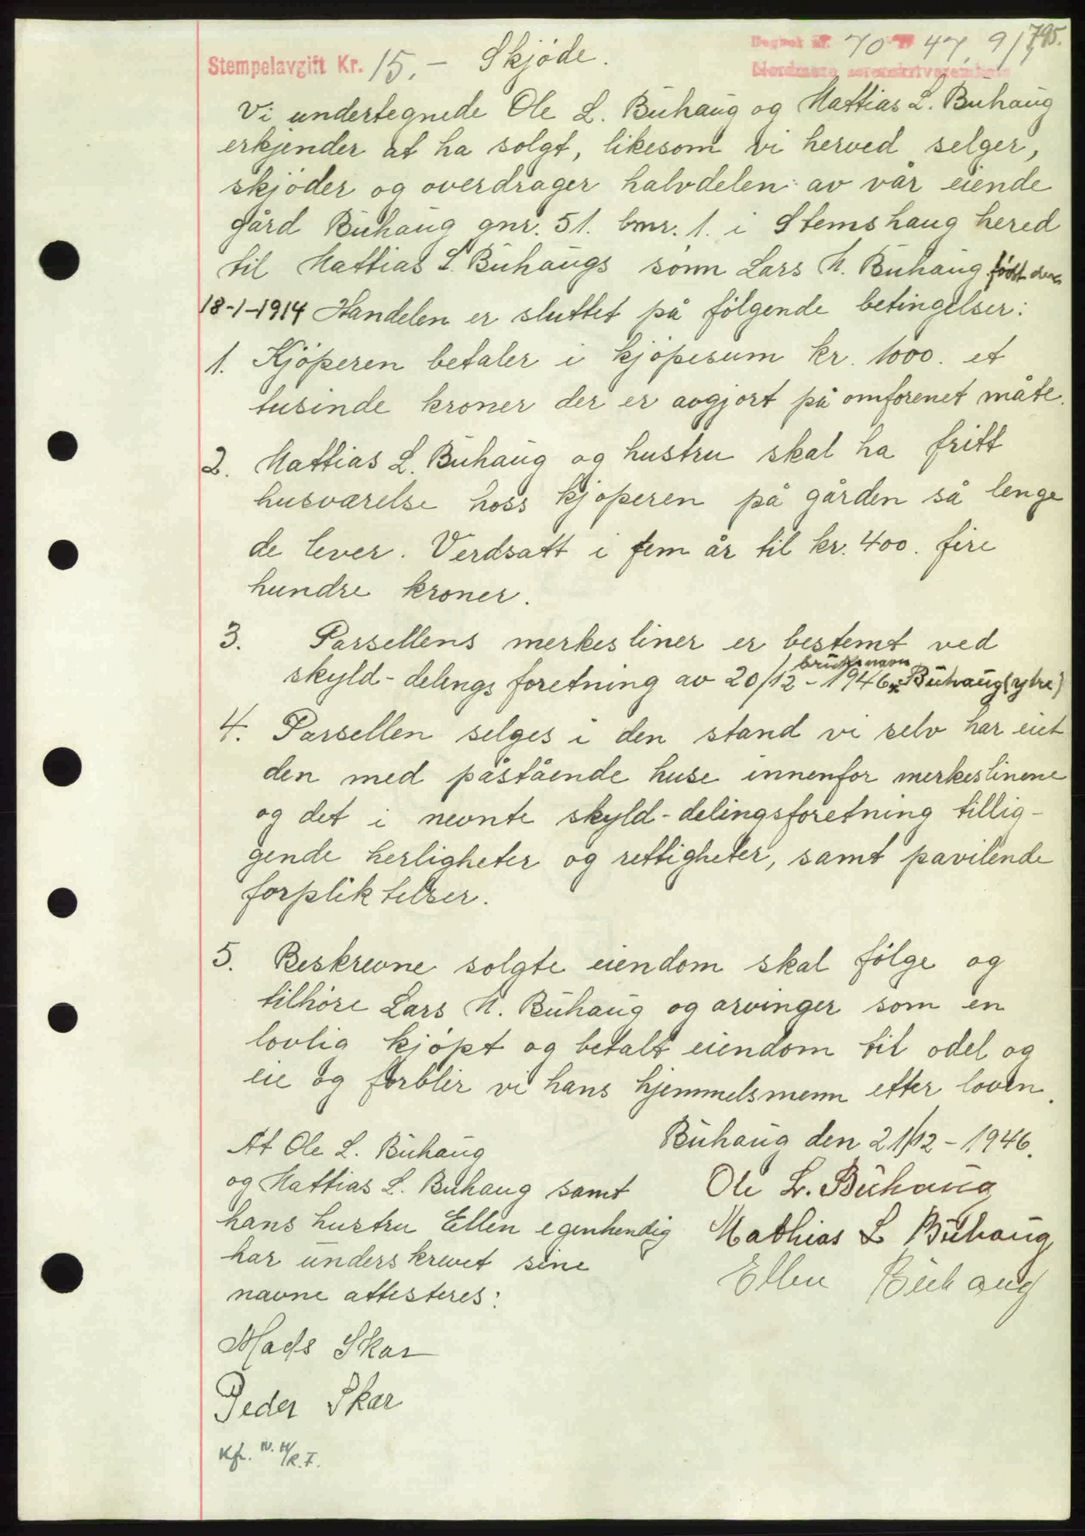 795.
Stempelavgift Kr. 15.- Skjøde.
Dagbok nr. 70 47, 9/1
Nordmøre sorenskriverembete
Vi undertegnede Ole L. Buhaug og Mattias L. Buhaug
erkjender at ha solgt, likesom vi herved selger,
skjøder og overdrager halvdelen av vår eiende
gård Buhaug gnr. 51. bnr. 1. i Stemshaug hered
til Mattias L. Buhaugs sønn Lars M. Buhaug født den
18-1-1914 Handelen er sluttet på følgende betingelser:
1. Kjøperen betaler i kjøpesum kr. 1000. et
tusinde kroner der er avgjort på omforenet måte.
2. Mattias L. Buhaug og hustru skal ha fritt
husværelse hoss kjøperen på gården så lenge
de lever. Verdsatt i fem år til kr. 400. fire
hundre kroner.
3. Parsellens merkesliner er bestemt ved
bruksnavn
skyld-delings foretning av 20/12-1946 x Buhaug (ytre)
4. Parsellen selges i den stand vi selv har eiet
den med påstående huse innenfor merkeslinene
og det i nevnte skyld-delingsforetning tillig-
gende herligheter og rettigheter, samt pavilende
forpliktelser.
5. Beskrevne solgte eiendom skal følge og
tilhøre Lars M. Buhaug og arvinger som en
lovlig kjøpt og betalt eiendom til odel og
eie og forblir vi hans hjemmelsmenn etter loven.
Buhaug den 21/12-1946.
At Ole L. Buhaug
og Mattias L. Buhaug samt
hans hustru Ellen egenhendig
har underskrevet sine
navne attesteres:
Ole L. Buhaug
Mathias L Buhaug
Ellen Buhaug
Mads Skar
Peder Skar
Kfr. N.H/R.F.